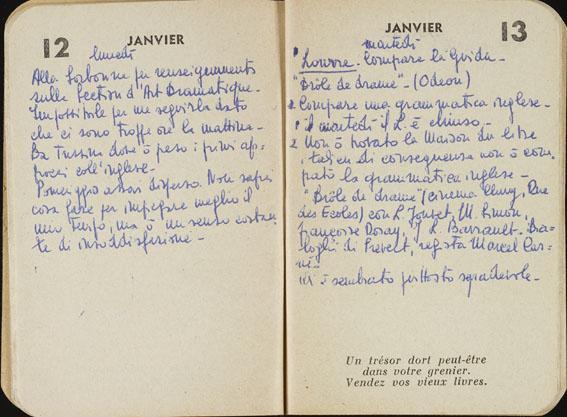 12 JANVIER
lunedì
Alla Sorbonne per renseignements
sulla Section d'Art Dramatique.
Impossibile per me seguirla dato
che ci sono troppe ore la mattina.
dove ò preso i primi ap-
procci coll'inglese.
Pomeriggio assai disperso. Non saprei
cosa fare per impiegare meglio il
mio tempo, ma ò un senso costan-
te di insoddisfazione -
JANVIER 13
martedì
1 Louvre. Comprare la Guida -
"Drôle de drame" - (Odeon)
2 Comprare una grammatica inglese -
1 il martedì il L. è chiuso -
2 Non ò trovato la Maison du livre
italien di conseguenza non ò com
prato la grammatica inglese -
"Drôle de drame" (cinema Cluny, Rue
des Écoles) con L. Jouvet, M. Simon,
Françoise Rosay, J. L. Barrault. Dia-
loghi di Prevert, regista Marcel Car-
né -
è sembrato piuttosto sgradevole -
Un trésor dort peut-être
dans votre grenier.
Vendez vos vieux livres.